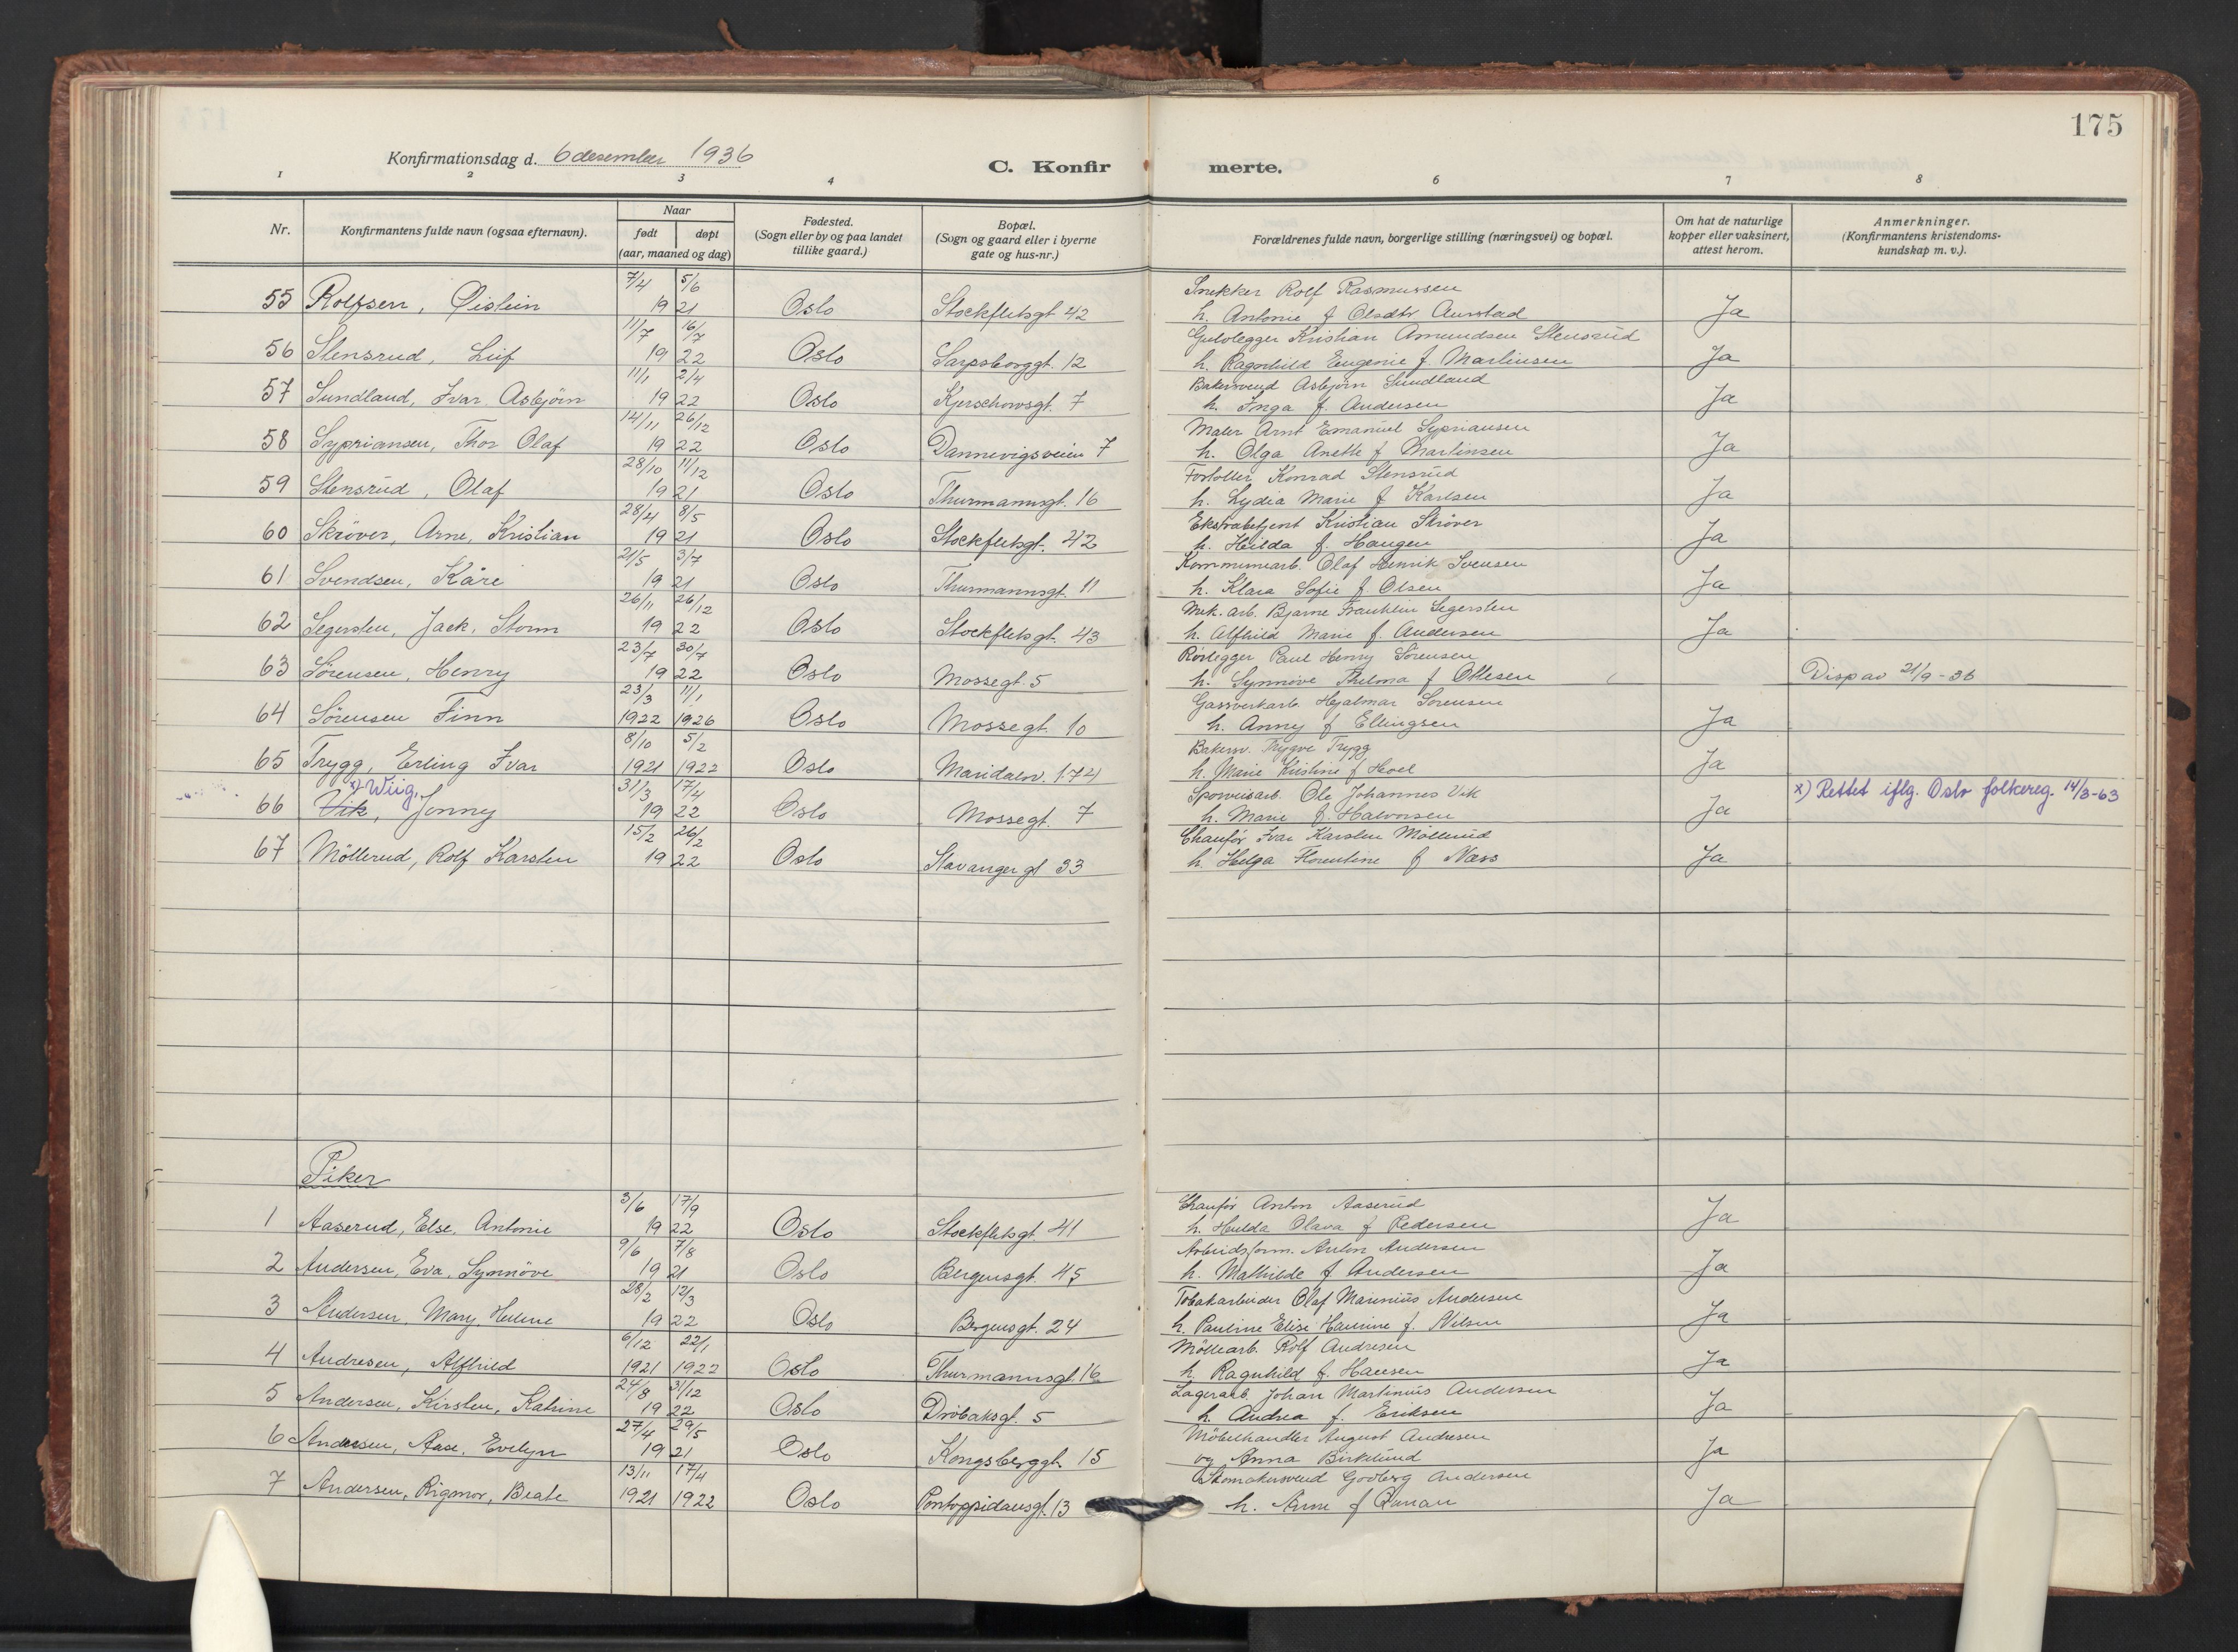 175
Konfirmationsdag d. 6 desember 1936
C. Konfir merte.
1 2 3 4 6 7 8
Nr.
Konfirmantens fulde navn (ogsaa efternavn).
Naar
født døpt
(aar, maaned og dag)
Fødested.
(Sogn eller by og paa landet
tillike gaard.)
Bopæl.
(Sogn og gaard eller i byerne
gate og hus-nr.)
Forældrenes fulde navn, borgerlige stilling (næringsvei) og bopæl.
Om hat de naturlige
kopper eller vaksinert,
attest herom.
Anmerkninger.
(Konfirmantens kristendoms-
kundskap m. v.).
7/4 5/6 Snekker Rolf Rasmussen
55 Rolfsen, Øistein 19 21 Oslo Stockfletsgt 42 h. Antonie f Olsdtr Aurstad Ja
11/7 16/7 Gulvlegger Kristian Amundsen Stensrud
56 Stensrud, Leif 19 22 Oslo Sarpsborggt. 12 h. Ragnhild Eugenie f. Martinsen Ja
11/1 2/4 Bakersvend Asbjørn Sundland
57 Sundland, Ivar Asbjörn 19 22 Oslo Kjerschowsgt. 7 h. Inga f. Andersen Ja
14/11 26/12 Maler Arnt Emanuel Sypriansen
58 Sypriansen, Thor Olaf 19 22 Oslo Dannevigsveien 7 h. Olga Anette f Martinsen Ja
28/10 11/12 Konrad Stensrud
59 Stensrud, Olaf 19 21 Oslo Thurmannsgt. 16 h. Lydia Marie f. Karlsen Ja
28/4 8/5 Ekstrabetjent Kristian Skröver
60 Skröver, Arne, Kristian 19 21 Oslo Stockfletsgt. 42 h. Hilda f. Haugen Ja
21/5 3/7 Kommunearb. Olaf Henrik Svensen
61 Svendsen, Kåre 19 21 Oslo Thurmannsgt. 11 h. Klara Sofie f Olsen Ja
26/11 26/12 Mek. arb. Bjarne Franklin Segersten
62 Segersten, Jack, Storm 19 22 Oslo Stockfletsgt. 43 h. Alfhild Marie f. Andersen Ja
23/7 30/7 Rörlegger Paul Henry Sörensen
63 Sörensen, Henry 19 22 Oslo Mossegt. 5 h. Synnöve Thelma f Ottesen Disp av 21/9-36
23/3 11/1 Gassverkarb. Hjalmar Sörensen
64 Sörensen Finn 1922 1926 Oslo Mossegt. 10 h. Anny f Ellingsen Ja
8/10 5/2 Bakersv. Trygve Trygg
65 Trygg, Erling Ivar 1921 1922 Oslo Maridalsv. 174 h. Marie Kristine f Hoel Ja
x) Wiig, 31/3 17/4 Sporveisarb. Ole Johannes Vik x) Rettet iflg. Oslo folkereg. 14/3-63
66 Vik, Jonny 19 22 Oslo Mossegt. 7 h. Marie f. Halvorsen Ja
15/2 26/2 Chauför Ivar Karsten Möllerud
67 Möllerud, Rolf Karsten 19 22 Oslo Stavangergt 33 h. Helga Florentine f Næss Ja
Piker
3/6 17/9 Chauför Anton Aaserud
1 Aaserud, Else, Antonie 19 22 Oslo Stockfletsgt. 41 h. Hulda Olava f Pedersen Ja
9/6 7/8 Arbeidsform. Anton Andersen
2 Andersen, Eva, Synnöve 19 21 Oslo Bergensgt. 45 h. Mathilde f. Andersen Ja
28/2 12/3 Tobakarbeider Olaf Marinius Andersen
3 Andersen, Mary, Helene 19 22 Oslo Bergensgt. 24 h. Pauline Elise f. Nilsen Ja
6/12 22/1 Möllearb. Rolf Andresen
4 Andresen, Alfhild 1921 1922 Oslo Thurmannsgt. 16 h. Ragnhild f. Hansen Ja
24/8 31/12 Lagerarb. Johan Martinius Andersen
5 Andersen, Kirsten, Katrine 19 22 Oslo Dröbaksgt. 5 h. Andrea f. Eriksen Ja
27/4 29/5 Möbelhandler August Andresen
6 Andresen, Aase, Evelyn 19 21 Oslo Kongsberggt. 15 og Anna Birkelund Ja
13/11 17/4 Skomakersvend Godberg Andersen
7 Andersen, Rigmor, Beate 1921 1922 Oslo Pontoppidansgt. 13 h. f Ja